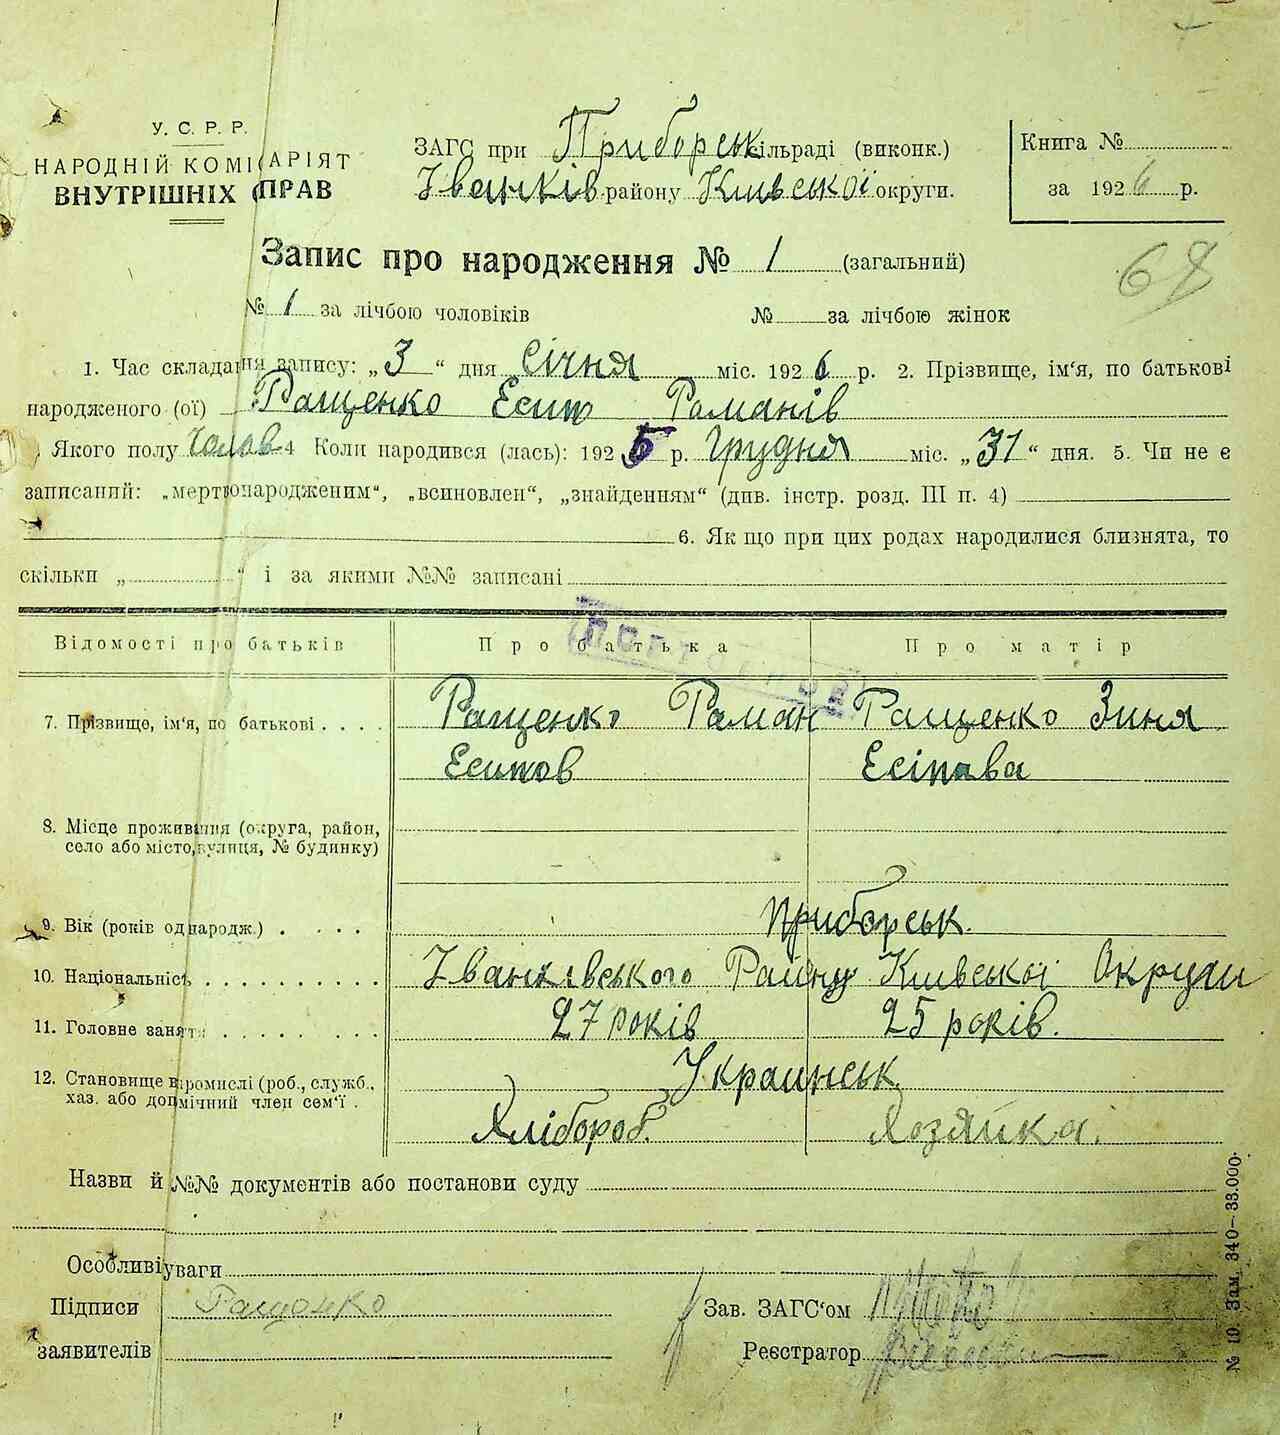 У. С. Р. Р.
НАРОДНІЙ КОМІСАРІЯТ
ВНУТРІШНІХ СПРАВ
ЗАГС при Приборськ сільраді (виконк.)
Іванків району Київської округи.
Книга №
за 1926 р.
Запис про народження № 1 (загальний)
68
№ 1 за лічбою чоловіків № за лічбою жінок
1. Час складання запису: „3“ дня Січня міс. 1926 р. 2. Прізвище, ім‘я, по батькові
народженого (ої) Ращенко Есип Раманів
Якого полу Чолов 4 Коли народився (лась): 1925 р. Грудня міс. „31“ дня. 5. Чи не є
записаний: „мертвонародженим“, „всиновлен“, „знайденням“ (див. інстр. розд. III п. 4)
6. Як що при цих родах народилися близнята, то
скільки „ “ і за якими №№ записані
Відомості про батьків Про батька Про матір
7. Прізвище, ім‘я, по батькові . . . . Ращенко Раман Ращенко Зиня
Есипов Есіпава
8. Місце проживання (округа, район,
село або місто, вулиця, № будинку)
9. Вік (років однародж.) . . . . Приборськ.
10. Національність . . . . . . . . . . Іванківського Району Київської Округи
11. Головне заняття . . . . . . . . . 27 років 25 років.
12. Становище в промислі (роб., служб., Украинськ
хаз. або допмічний член сем‘ї . Хлібороб. Хозяйка.
Назви й №№ документів або постанови суду
Особливі уваги
Підписи Ращенко Зав. ЗАГС‘ом
заявителів Реєстратор
№ 10. Зам. 340—33.000.